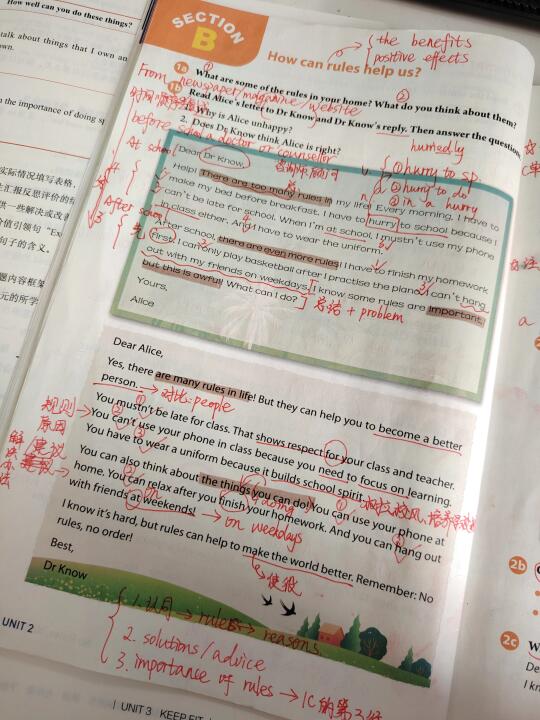 How well can you do these things?
talk about things that I own an
own.
n the importance of doing sp
实际情况填写表格,
SECTION
B
the benefits
positive effects
How can rules help us?
1a What are some of the rules in your home? What do you think about them?
From newspaper/magazine/website
1b Read Alice's letter to Dr Know and Dr Know's reply. Then answer the question
1. Why is Alice unhappy?
2. Does Dr Know think Alice is right?
before school
a doctor or counsellor
humedly
At school
After school
① hurry to sp.
② hurry to do
③ in a hurry
Dear Dr Know,
Help! There are too many rules in my life! Every morning, I have to
make my bed before breakfast. I have to hurry to school because I
can't be late for school. When I'm at school, I mustn't use my phone
in class either. And I have to wear the uniform.
After school, there are even more rules! I have to finish my homework
first. I can only play basketball after I practise the piano. I can't hang
out with my friends on weekdays. I know some rules are important,
but this is awful! What can I do?
总结 + problem
Yours,
Alice
Dear Alice,
Yes, there are many rules in life! But they can help you to become a better
person.
→ 对比: people
规则
原因
建议
You mustn't be late for class. That shows respect for your class and teacher.
You can't use your phone in class because you need to focus on learning.
You have to wear a uniform because it builds school spirit.
You can also think about the things you can do! You can use your phone at
home. You can relax after you finish your homework. And you can hang out
with friends at weekends!
on
doing
→ on weekdays
I know it's hard, but rules can help to make the world better. Remember: No
rules, no order!
使役
Best,
Dr Know
1. 认同 → rules → reasons
2. solutions/advice
3. importance of rules → 1c的第3
UNIT 2
UNIT 3 KEEP FIT
2b
2c